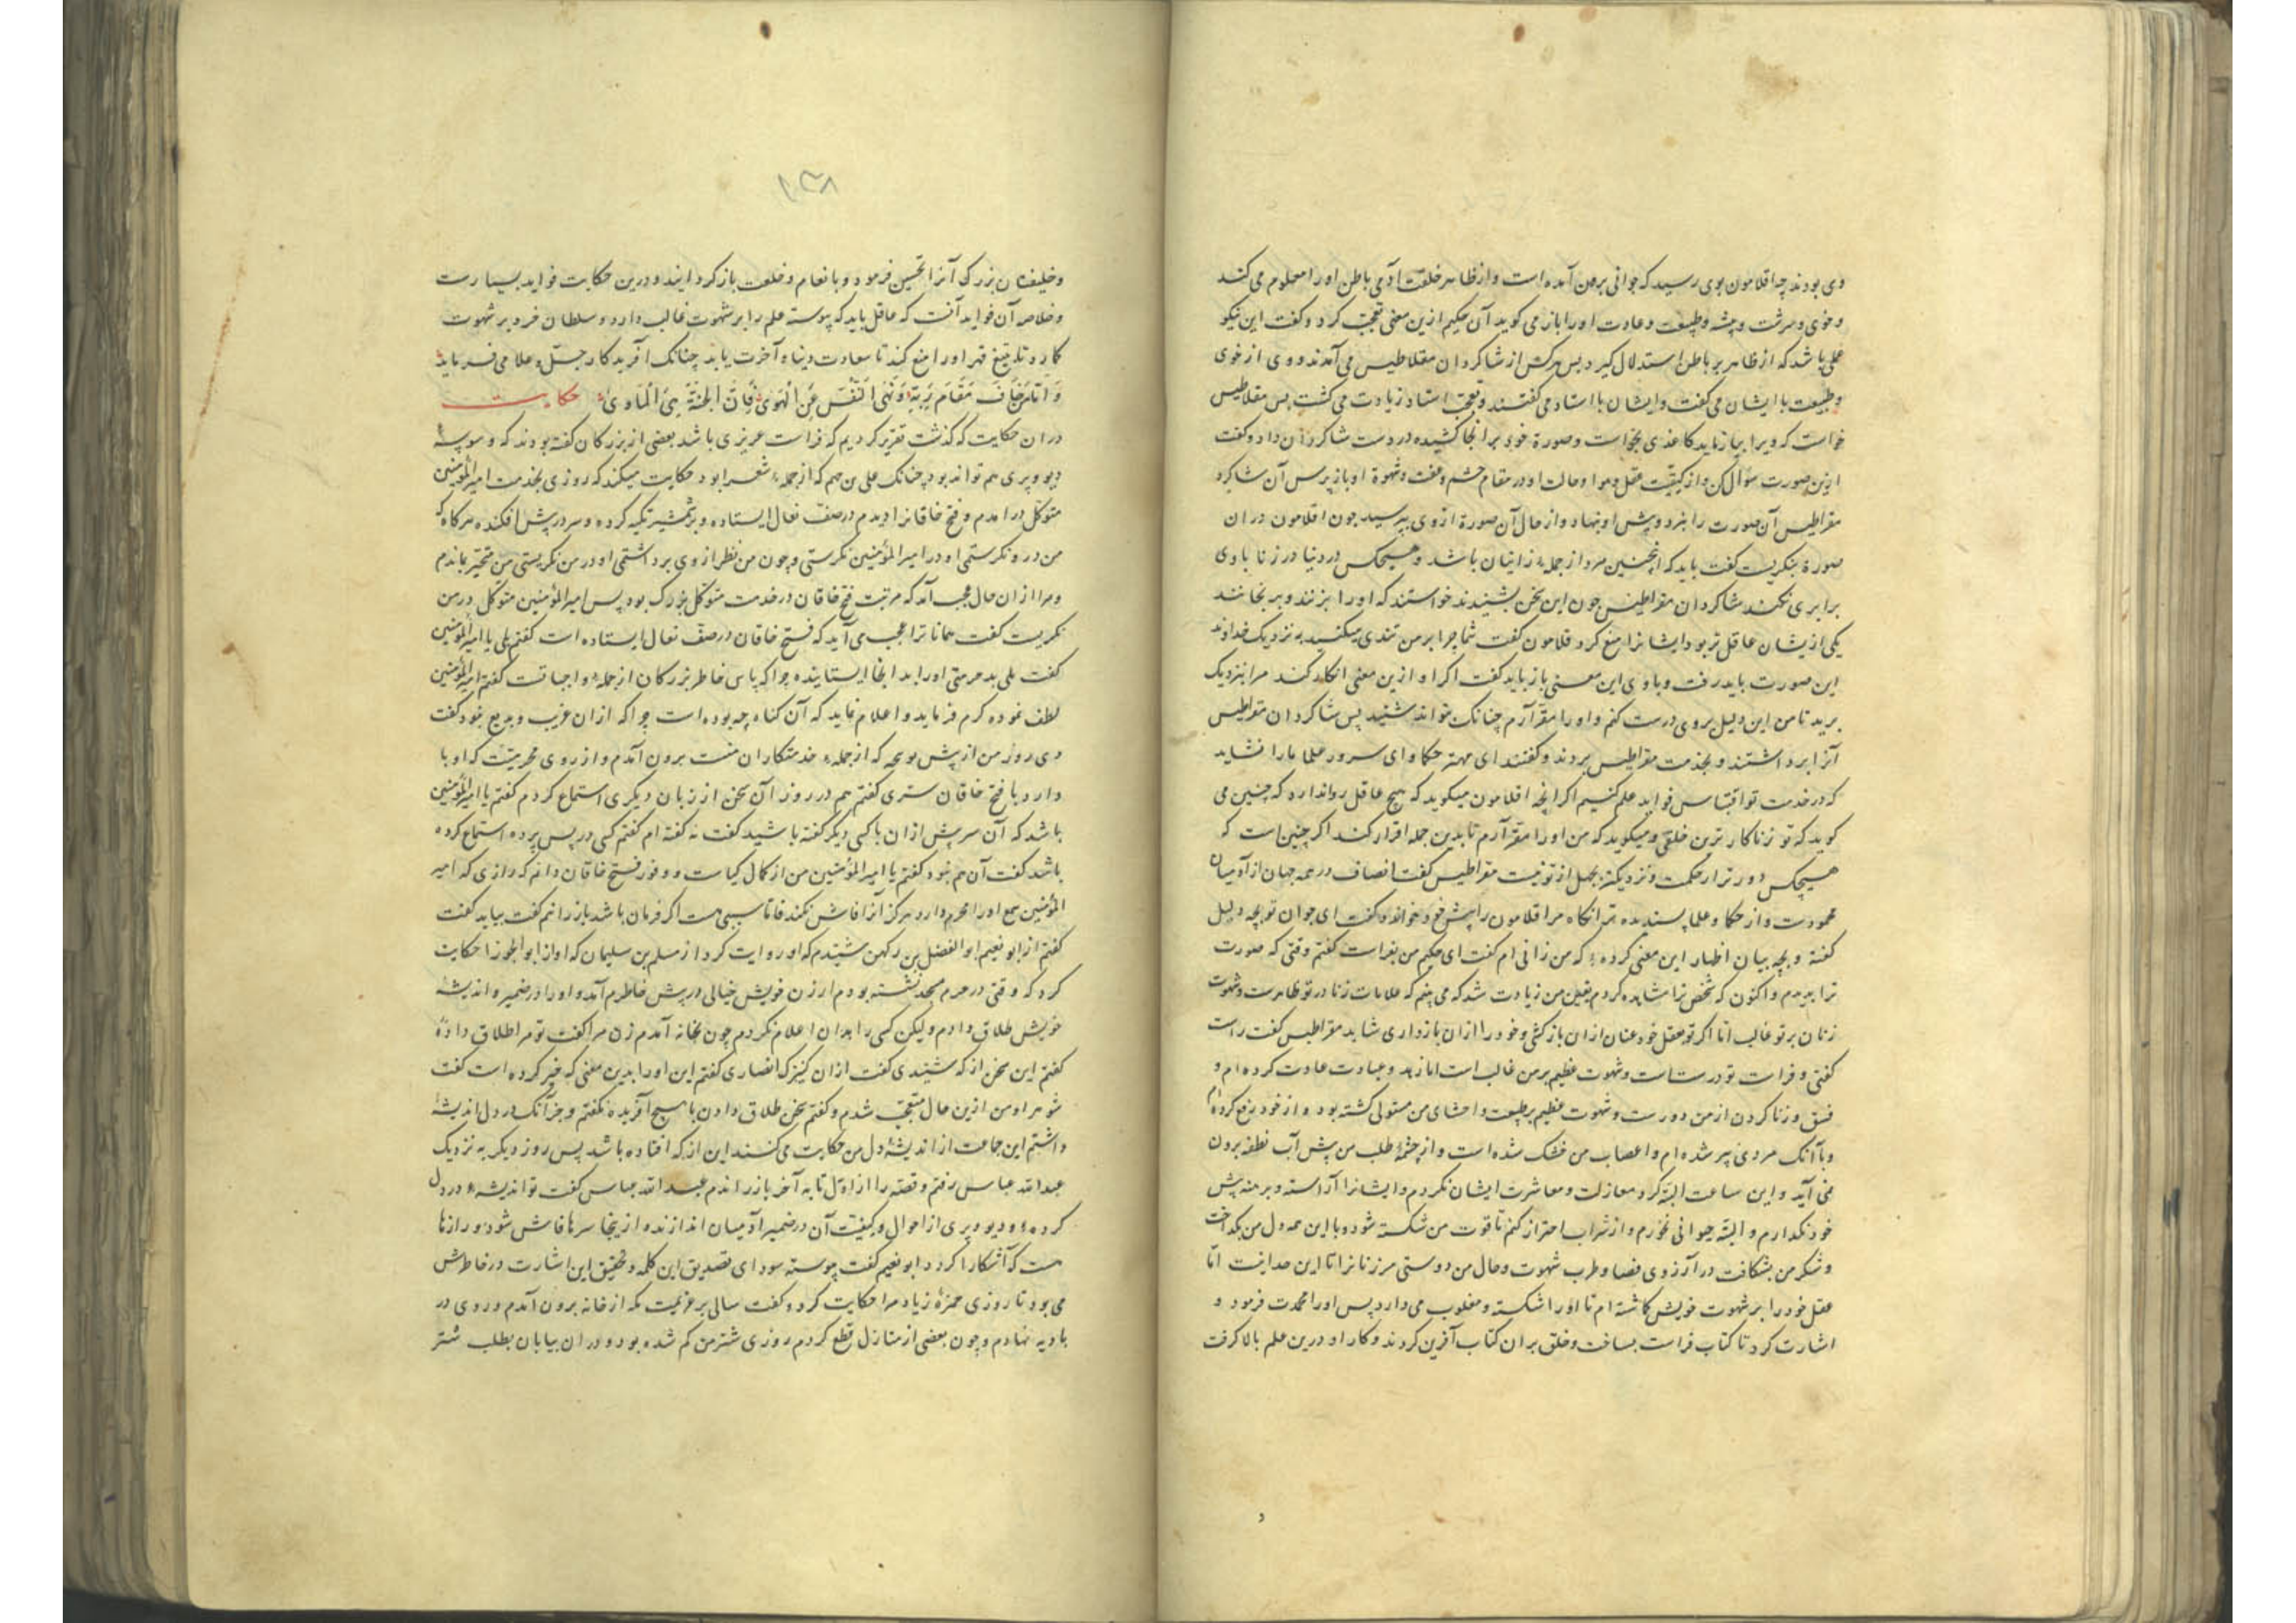 وی بودند چه اقلامون بوی رسید که جوانی برمن آمده است و از ظاهر خلقت آدمی باطن او را معلوم می کند
و خوی و سرشت و پیشه و طبیعت و عادت او را باز می کوید آن حکیم ازین معنی تعجب کرد و کفت این نیکو
علمی باشد که از ظاهر بر باطن استدلال کیرد پس هرکس از شاکردان مقلاطیس می آمدند و وی از خوی
و طبیعت با ایشان می کفت و ایشان با استاد می کفتند و تعجب استاد زیادت می کشت پس مقلاطیس
خواست که ویرا بیازماید کاغذی بخواست و صورة خود بر انجا کشیده در دست شاکردان داد و کفت
ازین صورت سؤال کن و از کیفیت عقل و هوا و حالت او در مقام خشم و عفت و شهوة او باز پرس آن شاکرد
مقراطیس آن صورت را بنزد ویش او بنهاد و از حال آن صورة از وی بپرسید چون اقلامون دران
صورة بنکریست کفت باید که اینچنین مرد از جمله زانیان باشد و هیچکس در دنیا در زنا با وی
برابری نکند شاکردان مقراطیس چون این سخن بشنیدند خواستند که او را بزنند و برنجانند
یکی ازیشان عاقل تر بود ایشانرا منع کرد قلامون کفت شما چرا بر من تندی میکنید به نزدیک خداوند
این صورت باید رفت و با وی این معنی باز باید کفت اکر او ازین معنی انکار کند مرا بنزدیک
برید تا من این دلیل بر وی درست کنم و او را مقر آرم چنانک تواند شنید پس شاکردان مقراطیس
آنرا برداشتند و بخدمت مقراطیس بردند و کفتند ای مهتر حکما و ای سرور علما ما را نشاید
که در خدمت تو اقتباس فواید علم کنیم اکر آنچه اقلامون میکوید که هیچ عاقل روا ندارد که چنین می
کوید که تو زناکار ترین خلقی و میکوید که من او را مقر آرم تا بدین جمله اقرار کند اکر چنین است که
هیچکس دورتر از حکمت و نزدیکتر بجهل از تو نیست مقراطیس کفت انصاف در همه جهان از آدمیان
محمودست و از حکما و علما پسندیده تر انکاه مر اقلامون را پیش خود خواند و کفت ای جوان تو بچه دلیل
کفتۀ و بچه بیان اظهار این معنی کردۀ که من زانی ام کفت ای حکیم من بفراست کفتم وقتی که صورت
ترا بدیدم و اکنون که شخص ترا مشاهده کردم یقین من زیادت شد که می بینم که علامات زنا در تو ظاهرست و شهوت
زنان بر تو غالب اما اکر تو بعقل خود عنان ازان باز کشی و خود را ازان باز داری شاید مقراطیس کفت راست
کفتی و فراست تو درستست و شهوت عظیم بر من غالب است اما زهد و عبادت عادت کرده ام و
فسق و زنا کردن از من دورست و شهوت عظیم بر طبیعت و احشای من مستولی کشته بود و از خود دفع کرده ام
و با آنک مردی پیر شده ام و اعصاب من خشک شده است و از چشمۀ طلب من پیش آب نطفه برون
نمی آید و این ساعت البته کرد مغازلت و معاشرت ایشان نکردم و ایشانرا آراسته و برهنه پیش
خود نکدارم و البته حیوانی نخورم و از شراب احتراز کنم تا قوت من شکسته شود و با این همه دل من بکداخت
و شکر من بشکافت در آرزوی فضا و طرب شهوت و حال من دوستی مر زنانرا تا این حد است اما
عقل خود را بر شهوت خویش کماشته ام تا او را شکسته و مغلوب می دارد پس او را محمدت فرمود و
اشارت کرد تا کتاب فراست بساخت و خلق بران کتاب آفرین کردند و کار او درین علم بالا کرفت
۱۳۸
و خلیفۀ بزرک آنرا تحسین فرمود و با انعام و خلعت باز کردانید و درین حکایت فواید بسیارست
و خلاصۀ آن فواید آنست که عاقل باید که پیوسته علم را بر شهوت غالب دارد و سلطان خرد بر شهوت
کمارد تا بتیغ قهر او را منع کند تا سعادت دنیا و آخرت یابد چنانک آفریدکار جل و علا می فرماید
وَ اَمّا مَنْ خَافَ مَقَامَ رَبِّهِ وَ نَهَی النَّفْسَ عَنِ الْهَوَی فَاِنَّ الْجَنَّةَ هِیَ الْمَاوَی حکایت
دران حکایت که کذشت تقریر کردیم که فراست غریزی باشد بعضی از بزرکان کفته بودند که وسوسۀ
دیو و پری هم تواند بود چنانک علی بن جهم که از جملۀ شعرا بود حکایت میکند که روزی بخدمت امیرالمؤمنین
متوکل درامدم و فتح خاقانرا دیدم در صف نعال ایستاده و بر شمشیر تکیه کرده و سر در پیش افکنده هرکاه که
من درو نکرستمی او در امیرالمؤمنین نکرستی و چون من نظر از وی برداشتمی او در من نکریستی من متحیر بماندم
و مرا ازان حال عجب آمد که مرتبت فتح خاقان در خدمت متوکل بزرک بود پس امیرالمؤمنین متوکل در من
نکریست کفت همانا ترا عجب می آید که فتح خاقان در صف نعال ایستاده است کفتم بلی یا امیرالمؤمنین
کفت بلی بد حرمتی او را بدانجا ایستانیده چراکه پاس خاطر بزرکان از جملۀ واجباتست کفتم امیرالمؤمنین
لطف نموده کرم فرماید و اعلام نماید که آن کناه چه بوده است چراکه ازان غریب و بدیع نمود کفت
دی روز من از پیش که از جملۀ خدمتکاران منست برون آمدم و از روی محرمیت که او با
دارد با فتح خاقان ستری کفتم هم در روز آن سخن از زبان دیکری استماع کردم کفتم یا امیرالمؤمنین
باشد که آن سر پیش ازان با کسی دیکر کفته باشید کفت نه کفته ام کفتم کسی در پس پرده استماع کرده
باشد کفت آن هم نبود کفتم یا امیرالمؤمنین من از کمال کیاست و وفور فتح خاقان دانم که رازی که امیر
المؤمنین سمع او را محرم دارد هرکز آنرا فاش نکند فاما سببی هست اکر فرمان باشد باز رانم کفت بباید کفت
کفتم از ابو نعیم ابو الفضل بن دکین شنیدم که او روایت کرد از مسلم بن سلیمان که او از ابو الجوزا حکایت
کرد که وقتی در حرم مسجد نشسته بودم از زن خویش خیالی در پیش خاطرم آمد و او را در ضمیر و اندیشۀ
خویش طلاق دادم ولیکن کسی را بدان اعلام نکردم چون بخانه آمدم زن مرا کفت تو مرا طلاق دادۀ
کفتم این سخن از که شنیدی کفت ازان کنیزک انصاری کفتم این او را بدین معنی که خبر کرده است کفت
شوهر او من ازین حال متعجب شدم و کفتم سخن طلاق دادن با هیچ آفریده نکفتم و جز آنک در دل اندیشۀ
داشتم این جماعت از اندیشۀ دل من حکایت می کنند این از که افتاده باشد پس روز دیکر به نزدیک
عبدالله عباس رفتم و قصه را از اول تا به آخر باز راندم عبدالله عباس کفت تو اندیشه در دل
کردۀ و دیو و پری از احوال و کیفیت آن در ضمیر آدمیان اندازند و ازینجا سرها فاش شود و رازها
هست که آشکارا کردد ابو نعیم کفت پیوسته سودای تصدیق این کلمه و تحقیق این اشارت در خاطرش
می بود تا روزی حمزۀ زیاد مرا حکایت کرد و کفت سالی بر عزیمت مکه از خانه برون آمدم و روی در
بادیه نهادم و چون بعضی از منازل قطع کردم روزی شتر من کم شده بود و دران بیابان بطلب شتر